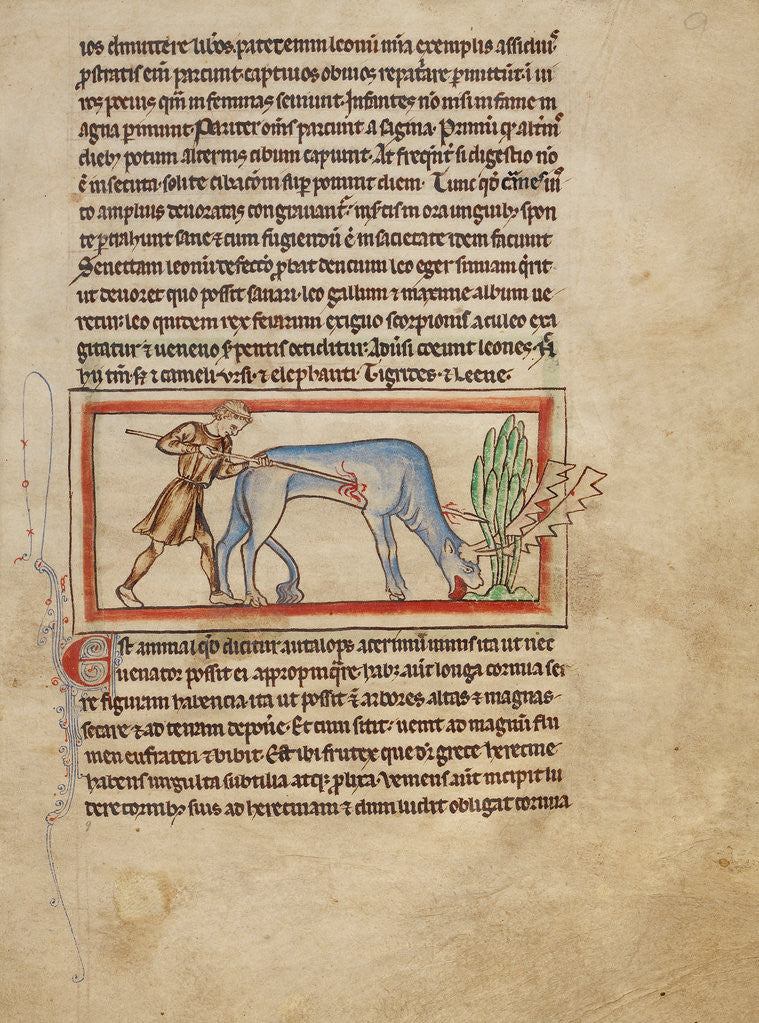 9
ios dimittere lib̾os. patet enim leonū mīa exemplis assiduis
ꝓstratis eni parcunt. captiuos obuios repat̾are ꝑmittūt. i ui
ros pocius qm̄ in feminas seuiunt. Infantes nō nisi in fame m
agna ꝑimunt. Pariter oīns parcunt a sagina. Primū qr̄ altnis
dieb; potum alternis cibum capiunt. At freqn̄t̾ si digestio nō
ē insecuta. solite cibacōni suꝑ ponunt diem. Tunc qd̄ carnes ius
to amplius deuoratas con grauant̾. insertis in ora unguib; spon
te ꝓtrahunt sane. ⁊ cum fugiendū ē in sacietate idem faciunt
Senettam leonū defectio ꝓbat dencium leo eger simiam q̄rit
ut deuoret quo possit sanari. leo gallum ⁊ maxime album ue
retur. leo quidem rex ferarum exiguo scorpionis aculeo exa
gitatur ⁊ ueneno s̾pentis occiditur. Adūsi coeunt leones.
hij tm̄ s; ⁊ cameli. ursi. ⁊ elephanti. Tigrides. ⁊ leene.
Est animal qd̄ dicitur autalops acerimū nimis ita ut nec
uenator possit ei appropinq̄re. hab; aūt longa cornua ser
re figuram habencia. ita ut possit ē arbores altas ⁊ magnas
secare ⁊ ad terram depon̄e. Et cum sitit. uenit ad magnū flu
men eufraten ⁊ bibit. Est ibi frutex que dr̄ grece herecine
habens uirgulta subtilia atq; ꝓlixa. Veniens aūt incipit lu
dere cornib; suis ad herecinam ⁊ dum ludit obligat cornua